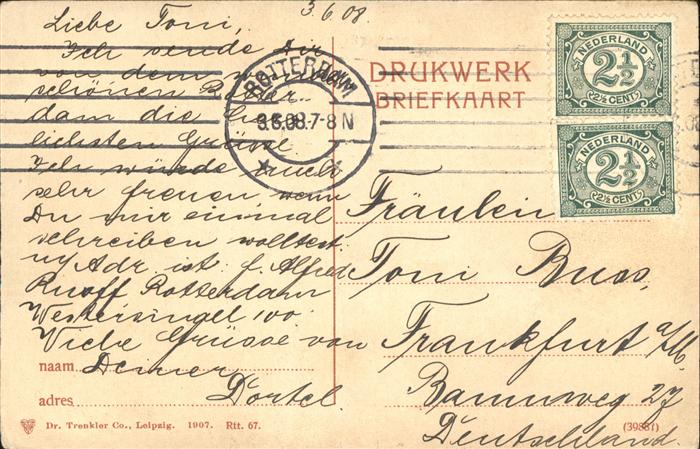 3.6.08.
Liebe Toni,
Ich sende Dir
von dem
schönen Rotter-
dam die
lichsten Grüsse.
Ich würde mich
sehr freuen, wenn
Du mir einmal
schreiben wolltest.
Adr. ist. Alfred
Ruoff Rotterdam
Westersingel 100
Viele Grüsse von
Deiner
Dortel.
naam
adres
ROTTERDAM
3.6.08.7-8 N
DRUKWERK
BRIEFKAART
NEDERLAND
2½
2½ CENT
NEDERLAND
2½
2½ CENT
Fräulein
Toni Buss,
Frankfurt a/M.
Baumweg 27
Deutschland.
Dr. Trenkler Co., Leipzig. 1907. Rtt. 67.
(39881)